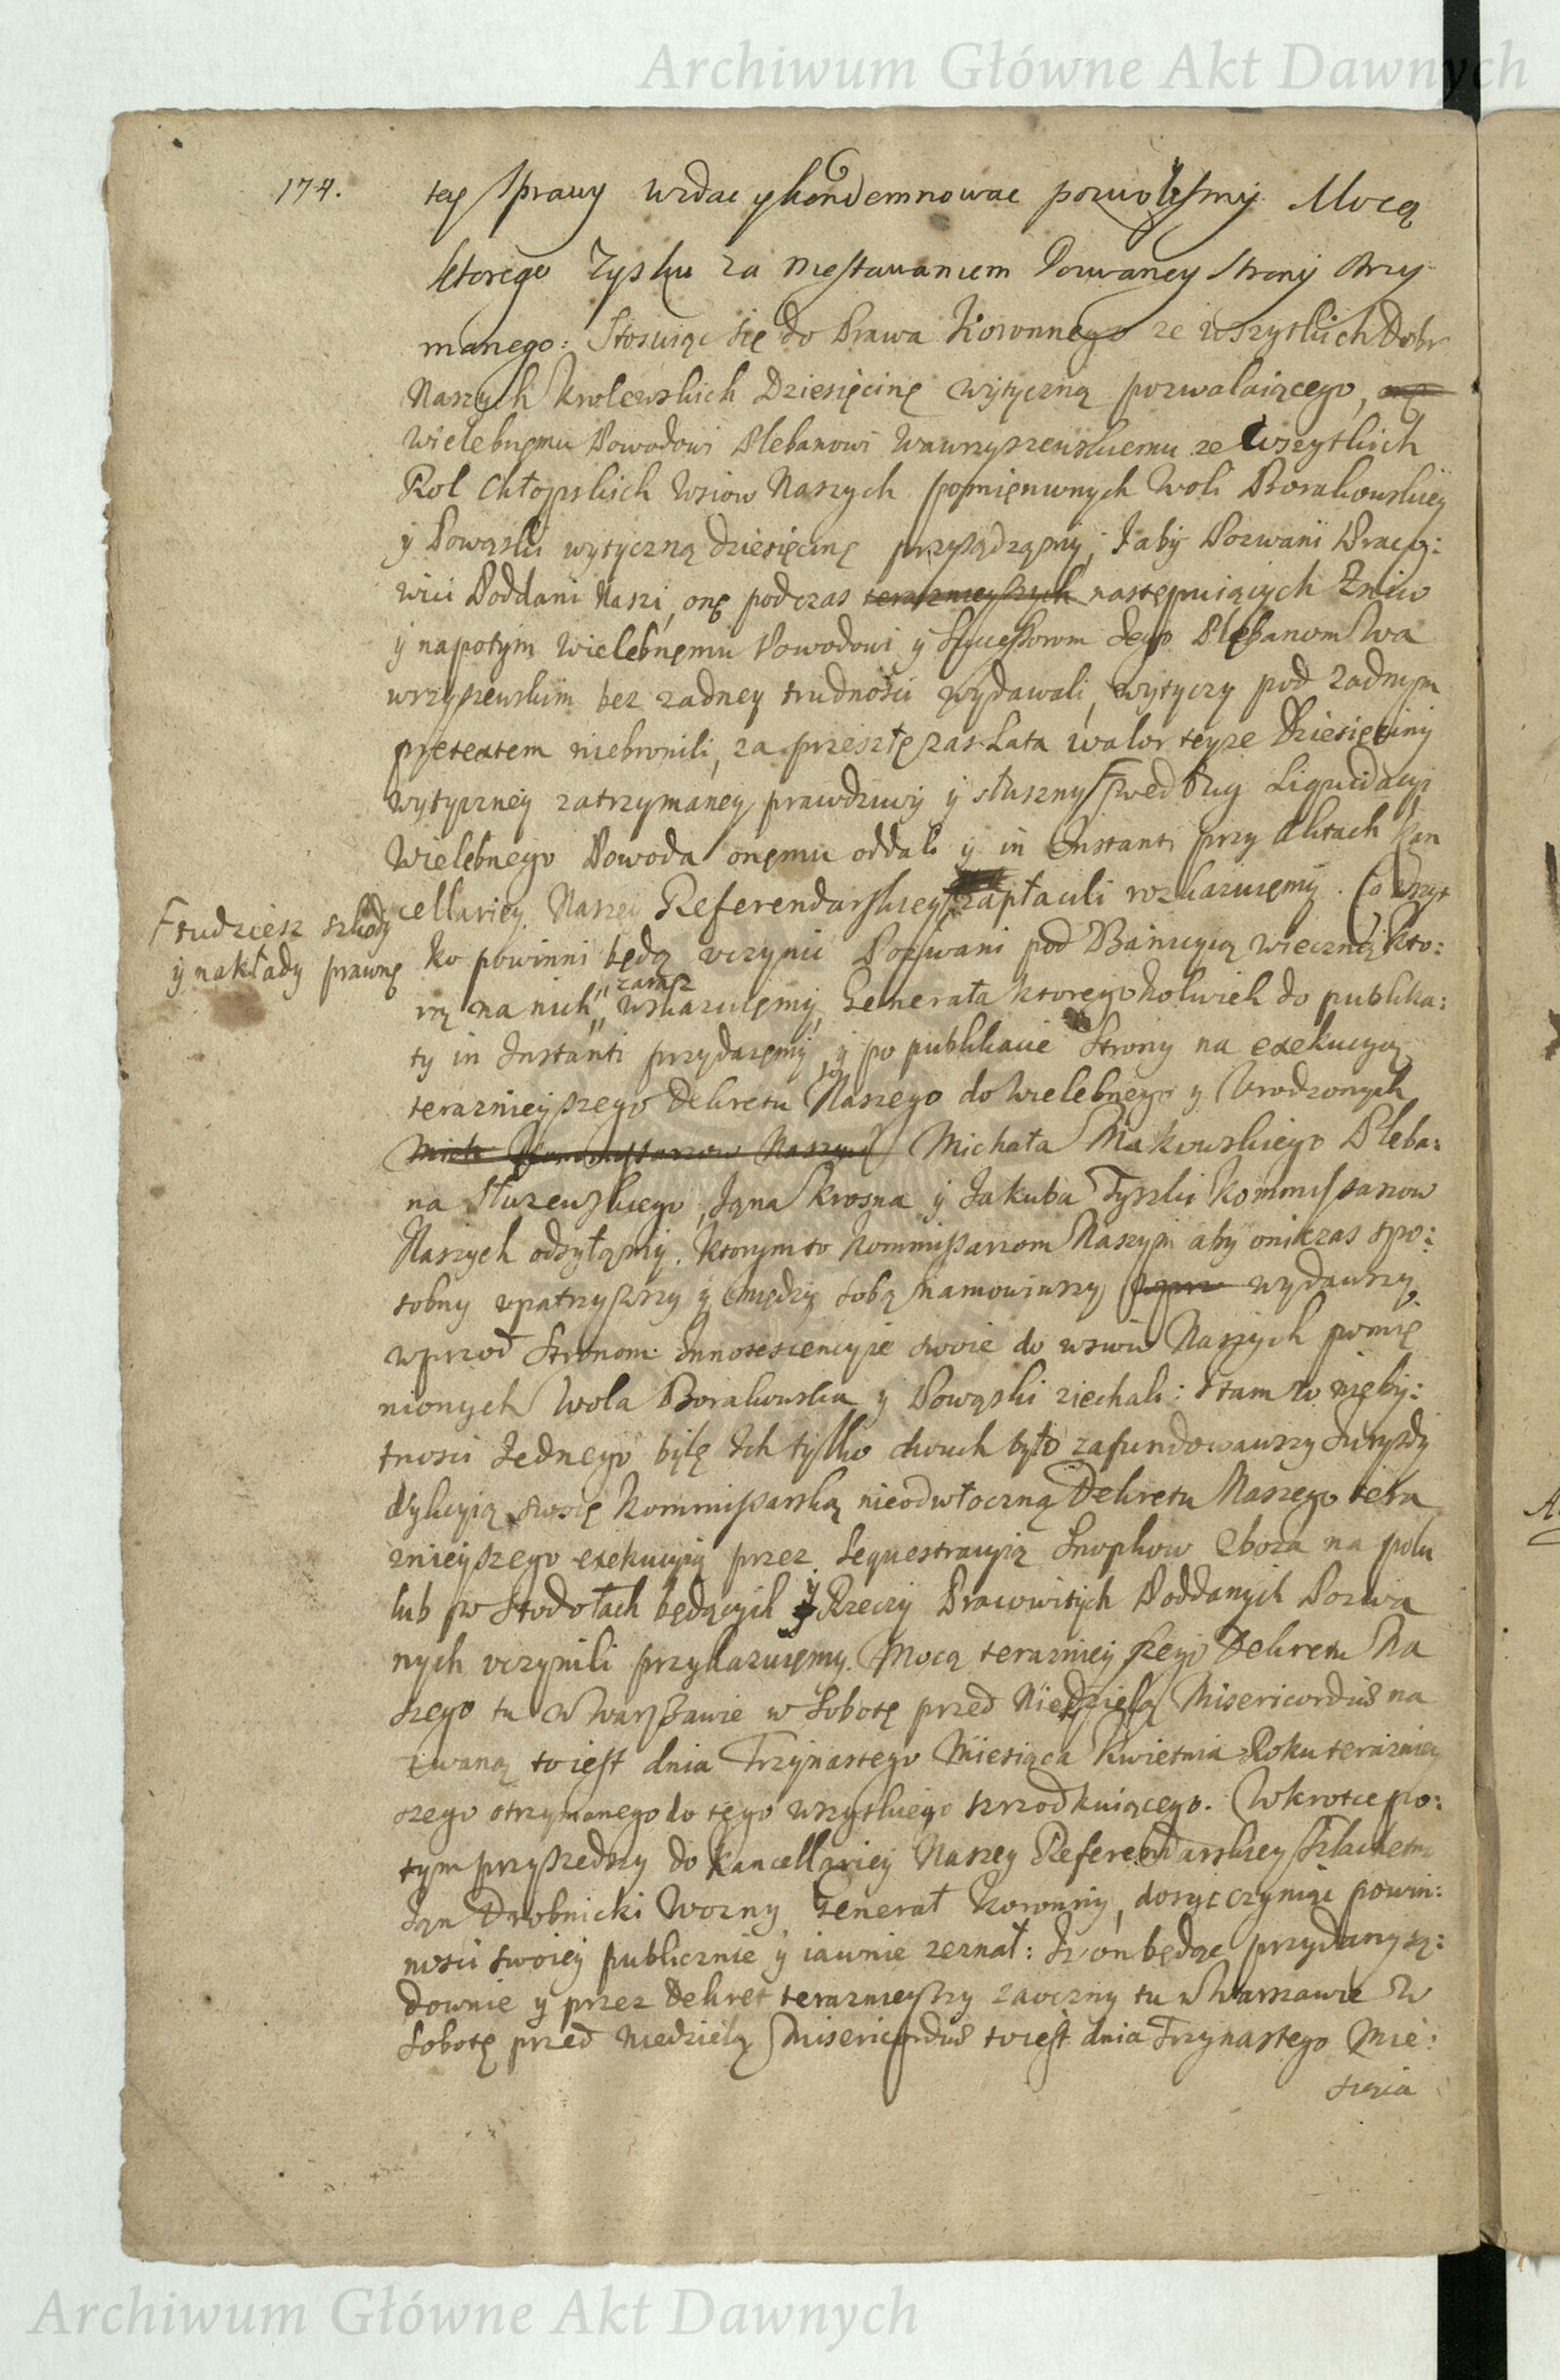 Archiwum Główne Akt Dawnych
174.
tey sprawy wzdac y kondemnowac pozwolismy. Mocą
ktorego Zysku za niestawaniem Pozwaney Strony otrzy
manego: Stosuiąc się do Prawa Koronnego ze wszystkich Dobr
Naszych Krolewskich Dziesięcinę wytyczną pozwalaiącego,
Wielebnemu Powodowi Plebanowi Wawrzyszewskiemu ze wszytkich
Rol Chłopskich Wsiow Naszych pomienionych Woli Borakowskiey
y Powąski wytyczną dziesięcinę przysądzamy; Jaby Pozwani Praco:
wici Poddani Naszi, onę podczas terazniejszych następuiących Zniw
y napotym Wielebnemu Powodowi y Successorom Jego Plebanom Wa
wrzyszewskim bez zadney trudności wydawali, wytyczy pod zadnym
pretextem niebronili, za przeszłe zas Lata walor teyze Dziesięciny
wytyczney zatrzymaney prawdziwy y słuszny według Liquidacyi
Wielebnego Powoda onemu oddali y in Instanti przy Aktach Kan
cellariey Naszey Referendarskiey zapłacili rozkazuiemy. Co wszyt
Ftudziesz szkody
y nakłady prawne
ko powinni będą uczynic Pozwani pod Banicyią wieczną kto:
rą na nich zaraz wskazuiemy, Generała ktoregokolwiek do publika:
ty in Instanti przydaiemy, y po publikacie Strony na exekucyią
teraznieyszego Dekretu Naszego do Wielebnego y Urodzonych
Mich Kommissarzow Naszych Michała Makowskiego Pleba:
na Służewskiego, Jana Krosna y Jakuba Tyszki Kommissarzow
Naszych odsyłamy. Ktorym to Kommissarzom Naszym aby oni czas spo:
sobny upatrzywszy y między sobą namowiwszy wydawszy
wprzod Stronom Innotescencyie swoie do wsiow Naszych pomie
nionych Wola Borakowska y Powąski ziechali: Y tam w nieby:
tnosci Jednego byle Ich tylko dwuch było zafundowawszy Juryzdy
dykcyią swoię Kommissarską nieodwłoczną Dekretu Naszego tera
znieyszego exekucyią przez Sequestracyią Snopkow Zboza na polu
lub w Stodołach będących y Rzeczy Pracowitych Poddanych Pozwa
nych uczynili przykazuiemy. Mocą teraznieyszego Dekretu Na
szego tu w Warszawie w Sobotę przed Niedzielą Misericordiæ na
zwaną to iest dnia Trzynastego Miesiąca Kwietnia Roku terazniey
szego otrzymanego do tego wszytkiego szrzodkuiącego. Wkrotce po:
tym przyszedszy do Kancellariey Naszey Referendarskiey Szlachetny
Jan Drobnicki Wozny Generał Koronny, dosyc czyniąc powin:
nosci swoiey publicznie y iawnie zeznał: Iz on będąc przydany są:
downie y przez Dekret teraznieyszy zaoczny tu w Warszawie w
Sobotę przed Niedzielą Misericordiæ to iest dnia Trzynastego Mie:
siąca
Archiwum Główne Akt Dawnych